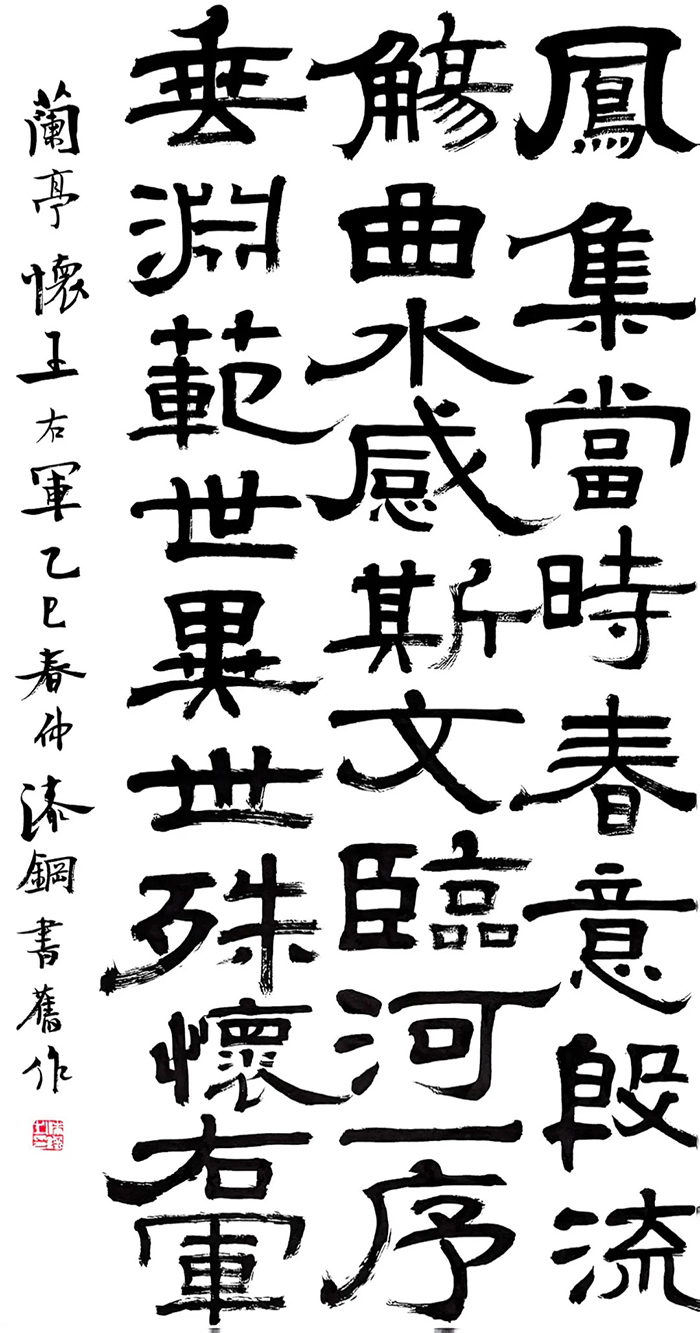 鳳集當時春意殷流
觴曲水感斯文臨河一序
垂淵範世異世殊懷右軍
蘭亭懷王右軍乙巳春仲漆鋼書舊作